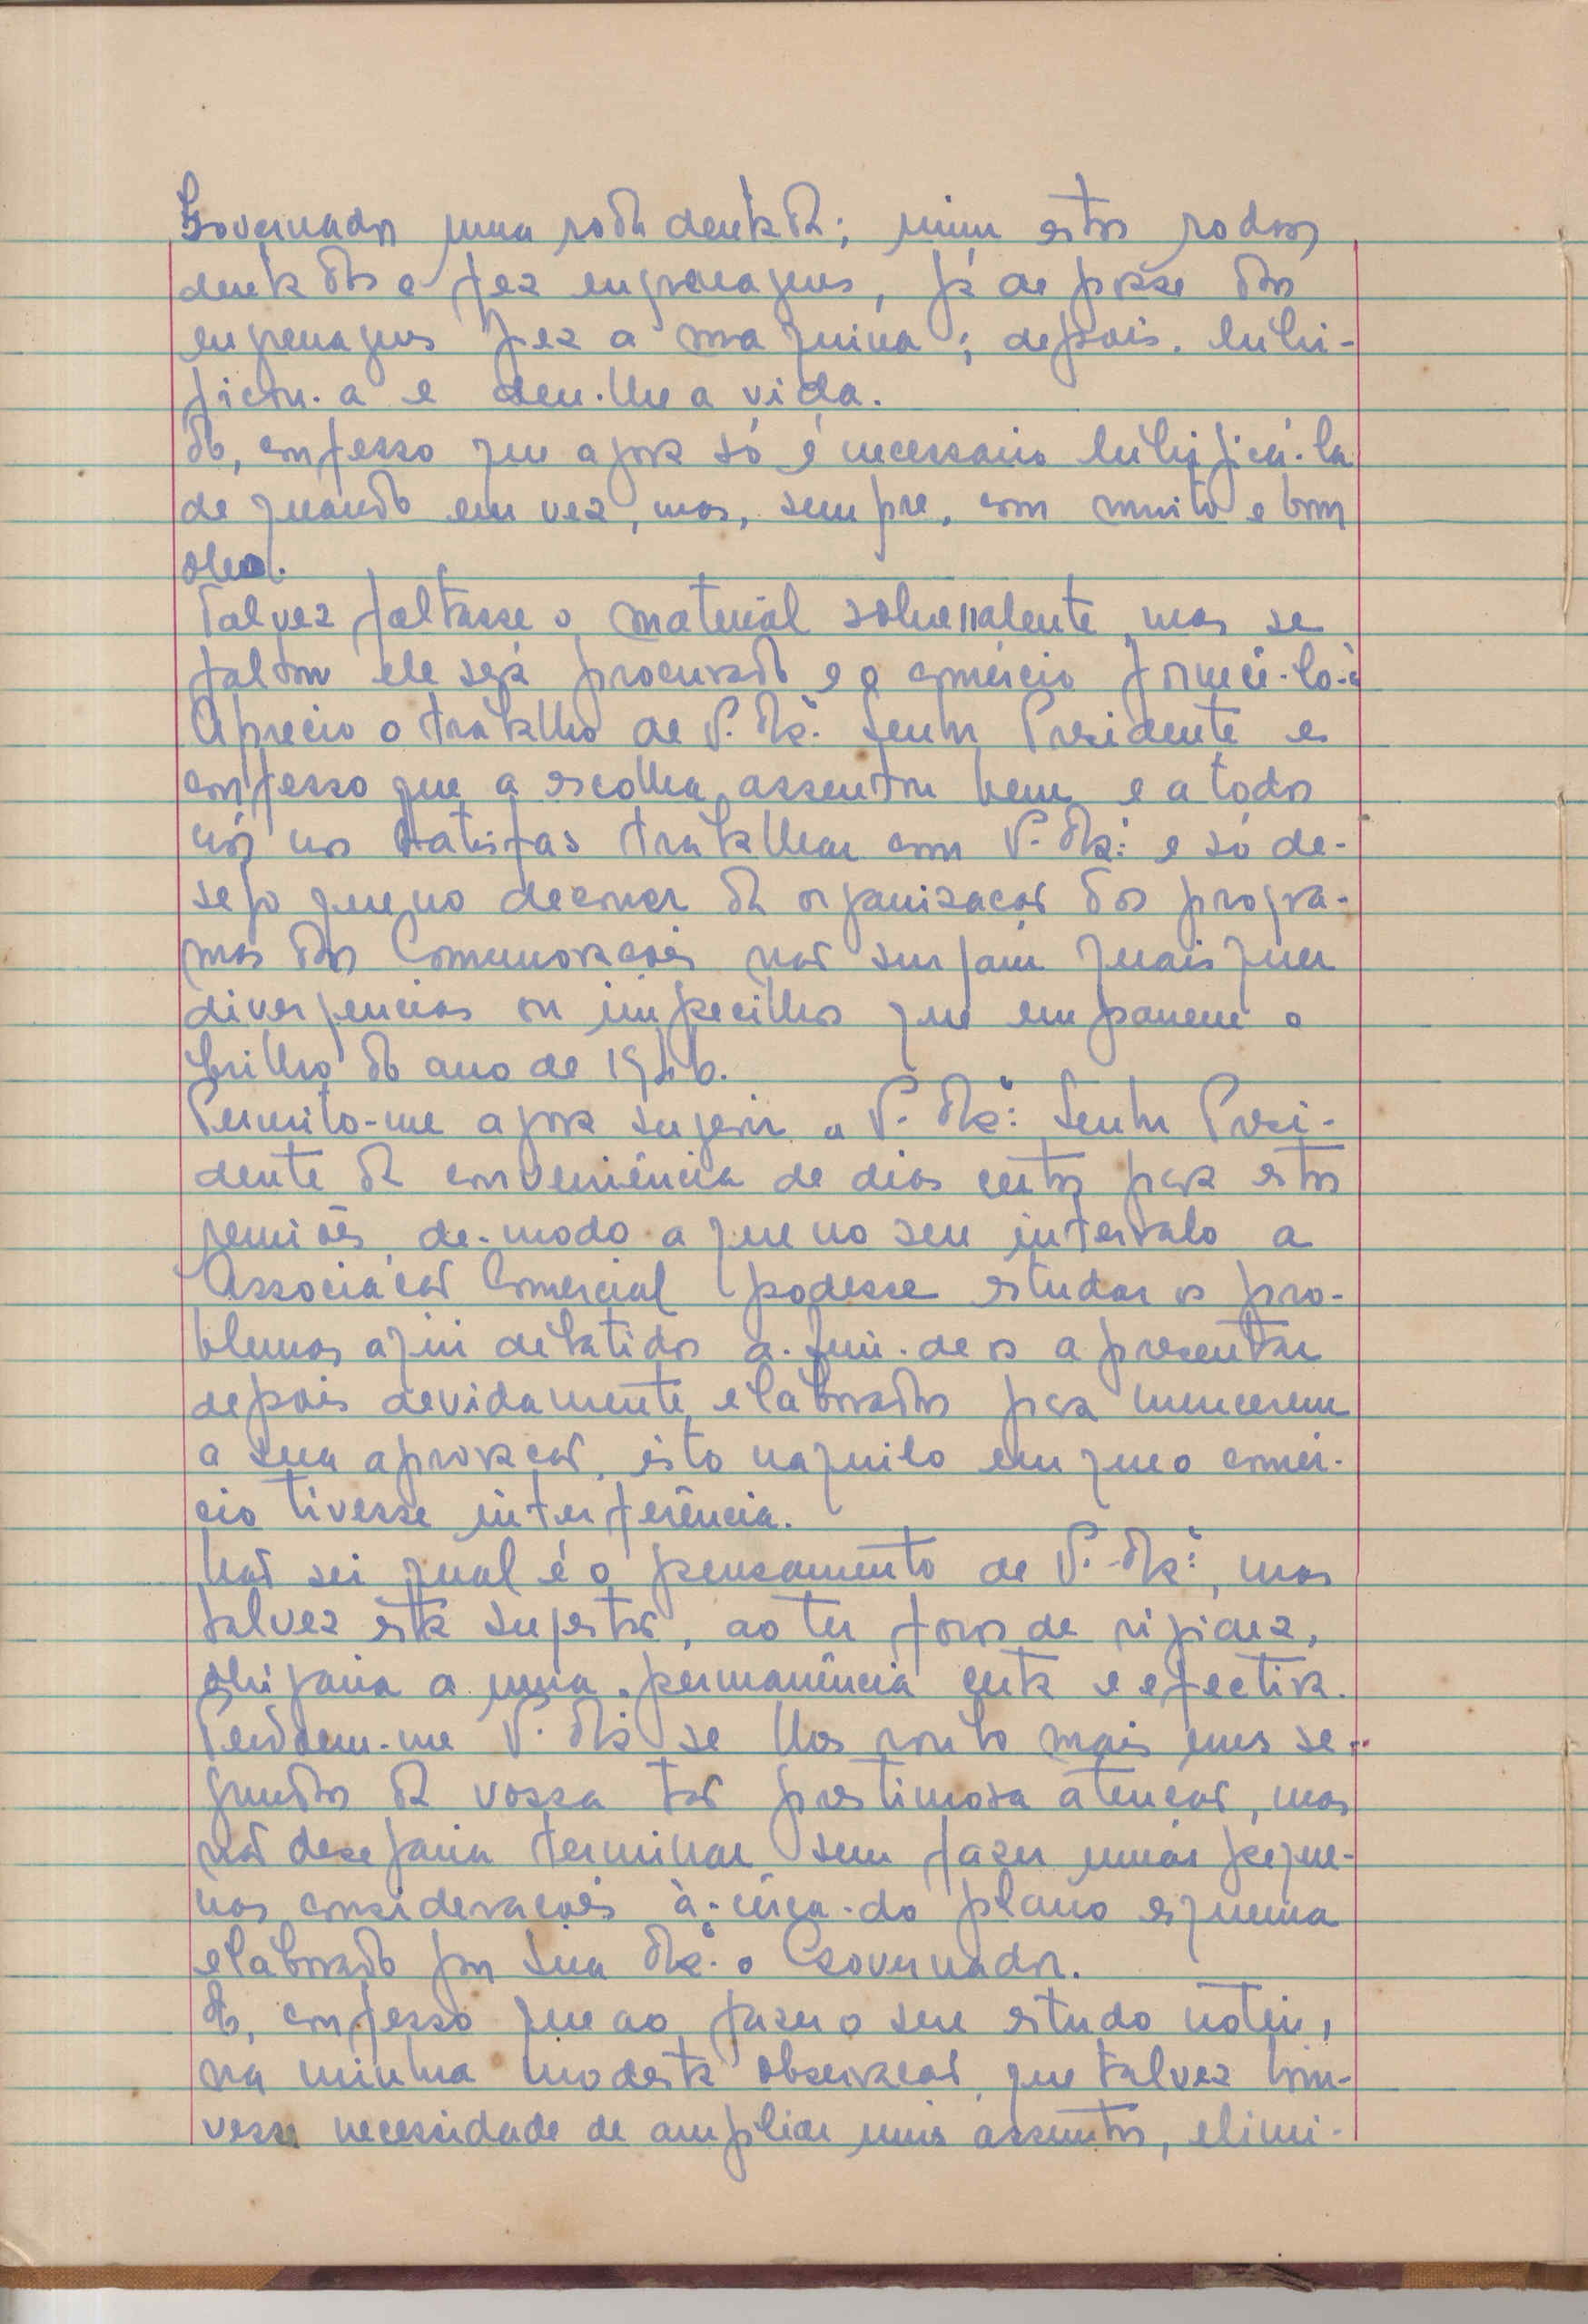 Governador uma roda dentada; uniu estas rodas
dentadas e fez engrenagens, já de posse das
engrenagens fez a maquina; depois. lubri-
ficou-a e deu-lhe a vida.
confesso que agora só é necessario lubrificá-la
de quando em vez, mas, sempre, com muito e bom
oleo.
Talvez faltasse o material sobresalente, mas se
faltou ele será procurado e o comércio fornecê-lo-à
Aprecio o trabalho de V. Exª. Senhor Presidente e
confesso que a escolha assentou bem e a todos
nós nos satisfas trabalhar com V. Exª. e só de-
sejo que no decorrer da organização dos progra-
mas das Comemorações não surjam quaisquer
divergencias ou impecilhos que empanem o
brilho do ano de 1946.
Permito-me agora sugerir a V. Exª. Senhor Presi-
dente da conveniência de dias certos para estas
reuniões, de-modo a que no seu intervalo a
Associação Comercial podesse estudar os pro-
blemas aqui debatidos a-fim-de os apresentar
depois devidamente elaborados para merecerem
a sua aprovação, isto naquilo em que o comér-
cio tivesse interferência.
Não sei qual é o pensamento de V. Exª., mas
talvez esta sugestão, ao ter foros de rigidez,
obrigaria a uma permanência certa e efectiva.
Perdoem-me V. Exª se lhes roubo mais uns se-
gundos da vossa tão prestimosa atenção, mas
não desejaria terminar sem fazer umas peque-
nas considerações à-cêrca-do plano esquema
elaborado por Sua Exª. o Governador.
confesso que ao fazer o seu estudo notei,
na minha modesta observação, que talvez hou-
vesse necessidade de ampliar uns assuntos, elimi-